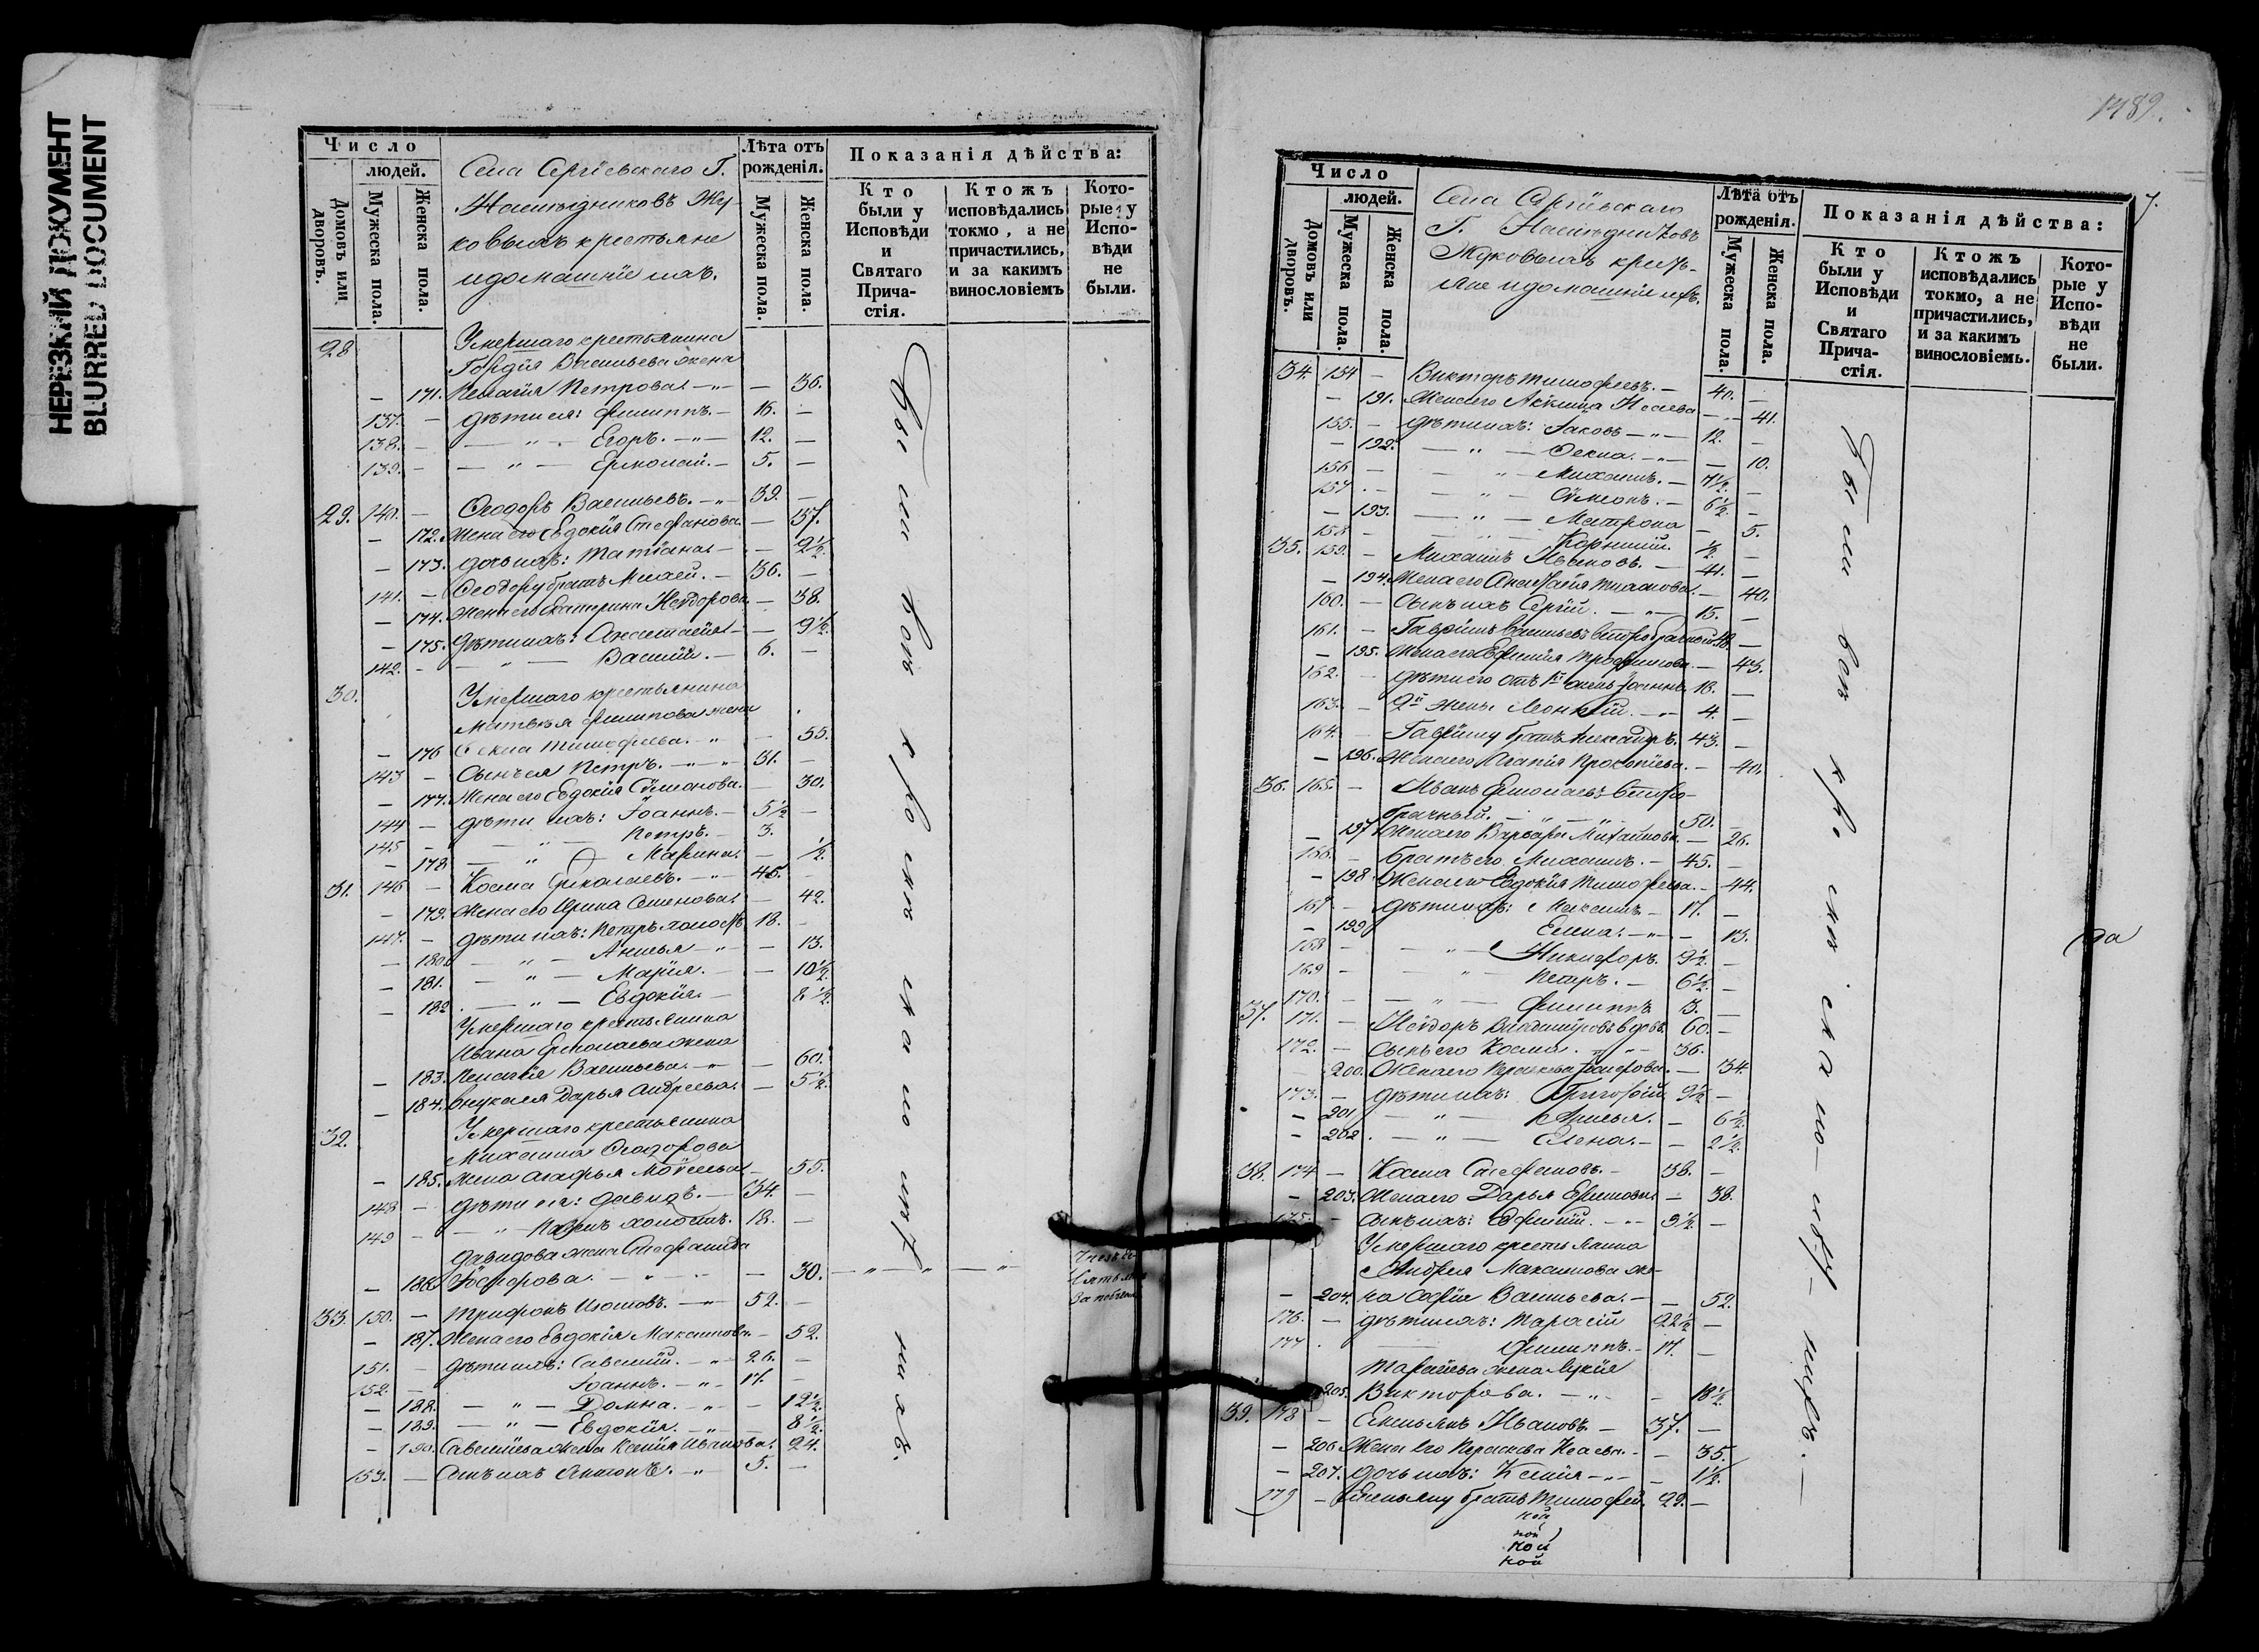 НЕРЕЗКИЙ ДОКУМЕНТ
BLURRED DOCUMENT
Число
людей.
Домовъ или дворовъ.
Мужеска пола.
Женска пола.
Села Сергіевскаго Г.
Наслѣдниковъ Жу-
ковыхъ крестьяне
и домашніе ихъ.
Лѣта отъ
рожденія.
Мужеска пола.
Женска пола.
Показанія дѣйства:
Кто
были у
Исповѣди
и
Святаго
Прича-
стія.
Ктожъ
исповѣдались
токмо, а не
причастились,
и за какимъ
винословіемъ
Кото-
рые у
Испо-
вѣди
не
были.
28 Умершаго крестьянина
Гордія Васильева жена
— 171. Пелагія Петрова. — 36.
137. — дѣти ея: Филиппъ. — 16. —
138. — — " — Егоръ. — 12. —
139. — — " — Ермолай. — 5. —
29. 140. — Ѳеодоръ Васильевъ. — 39. —
— 172. Жена его Евдокія Стефанова. — 37.
— 173. дочь ихъ: Татіана. — 9½.
141. — Ѳеодору братъ Михей. — 36. —
— 174. Жена его Екатерина — 38.
— 175. Дѣти ихъ: Анастасія — 9½.
142. — — " — Василій. — 6. —
30. Умершаго крестьянина
Матвѣя Филипова жена
— 176 Ѳекла Тимофеева. — 55.
143 — Сынъ ея Петръ. — 31. —
— 177. Жена его Евдокія Сѵмеонова. 30.
144 — дѣти ихъ: Іоаннъ. — 5½ —
145 — — " — Петръ. — 3.
— 178 — " — Марина. — ½.
31. 146 — Косма Ермолаевъ. — 45. —
— 179. Жена его Ирина Семенова. — 42.
147. — дѣти ихъ: Петръ холостъ 18. —
— 180. — " — Анисья — 13.
— 181. — " — Марія. — 10½.
— 182. — " — Евдокія. — 8½.
Умершаго крестьянина
Ивана Ермолаева жена
— 183. Пелагія Васильева. — 60.
— 184. внука ея Дарья Андреева. — 5½.
32. Умершаго крестьянина
Михаила Ѳеодорова
— 185. жена Агафья Моѵсеева — 55.
148 — дѣти ея: Давидъ. — 34. —
149 — — " — Павелъ холостъ. 18. —
Давидова жена Стефанида
— 186. — 30.
33. 150. — Трифонъ Изотовъ. — 52. —
— 187. Жена его Евдокія Максимова — 52.
151. — дѣти ихъ: Савелій. — 26. —
152. — Іоаннъ. — 17. —
— 188. — " — Домна. — 12½.
— 189. — " — Евдокія. — 8½.
— 190. Савеліева жена Ксенія Иванова. 24.
153. — Сынъ ихъ Антонъ. — 5. —
Были все
1789.
7.
Число
людей.
Домовъ или дворовъ.
Мужеска пола.
Женска пола.
Села Сергіевскаго
Г. Наслѣдниковъ
Жуковыхъ кресть-
яне и домашніе ихъ.
Лѣта отъ
рожденія.
Мужеска пола.
Женска пола.
Показанія дѣйства:
Кто
были у
Исповѣди
и
Святаго
Прича-
стія.
Ктожъ
исповѣдались
токмо, а не
причастились,
и за какимъ
винословіемъ.
Кото-
рые у
Испо-
вѣди
не
были.
34. 154 — Викторъ Тимофеевъ. — 40. —
— 191. Жена его Акилина Исаева — 41.
155. — дѣти ихъ: Іаковъ — 12. —
— 192. — " — Ѳекла. — 10.
156 — — " — Михаилъ. — 7½. —
157. — — " — Сѵмеонъ. — 6½. —
— 193. — " — Матрона — 5.
158 — Корнилій. ½. —
35. 159. — Михаилъ — 41. —
— 194. Жена его Анастасія — 40.
160. — Сынъ ихъ Сергій. — 15. —
161. — Гавріилъ Васильевъ второбрачный 48. —
— 195. Жена его Евфимія Трофимова. — 43.
162. — дѣти его отъ 1й жены Іоаннъ 18. —
163. — 2й жены Леонтій. — 4. —
164. — Гавріилу братъ Александръ. 43. —
— 196. Жена его Прокопіева. — 40.
36. 165. — Иванъ Ермолаевъ второ-
брачный. — 50. —
— 197. Жена его Варвара Михаилова. — 26.
166. — братъ его Михаилъ. — 45. —
— 198. Жена его Евдокія Тимофеева. — 44.
167. — дѣти ихъ: Максимъ. — 17. —
— 199 Елена. — 13.
168 — — " — Никифоръ. 9½. —
169 — — " — Петръ. — 6½. —
170. — — " — Филиппъ 3. —
37. 171. — вдовъ 60. —
172. — сынъ его Косма. — 36.
200. Жена его — 34.
173. — дѣти ихъ: Григорій 9½ —
— 201 — " — Анисья. — 6½.
— 202. — " — Елена. — 2½.
38. 174 — Косма Стефановъ. — 38. —
— 203. Жена его Дарья — 38.
175. — сынъ ихъ: Евфимій. — 9½ —
Умершаго крестьянина
Андрея Максимова же-
— 204. на Софія Васильева. — 52.
176. — дѣти ихъ: Тарасій 22½ —
177 Филиппъ. — 17. —
Тарасіева жена Лукія
205. Викторова. — 18½.
39. 178 — Емельянъ Ивановъ. — 37. —
— 206 Жена его Параскева Исаева. — 35.
— 207. дочь ихъ: Ксенія — 1½.
179 — Емельяну братъ Тимофей. 29. —
кой
кой
кой
кой